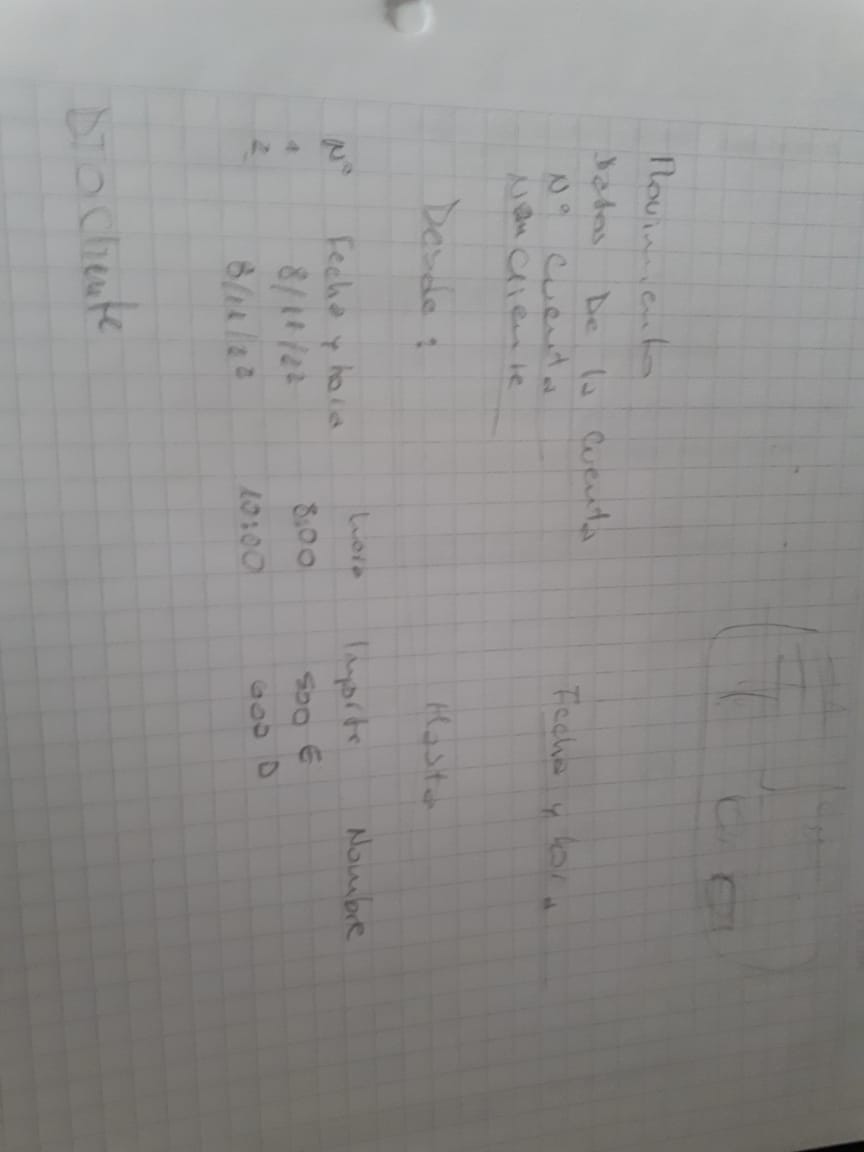 Movimiento
Datos De la Cuenta
Nº Cuenta
Fecha y hora
Nom Cliente
Desde:
Hasta
Nº Fecha y hora hora Importe Nombre
1 8/11/22 8:00 500 €
2 8/11/22 10:00
DTO Cliente